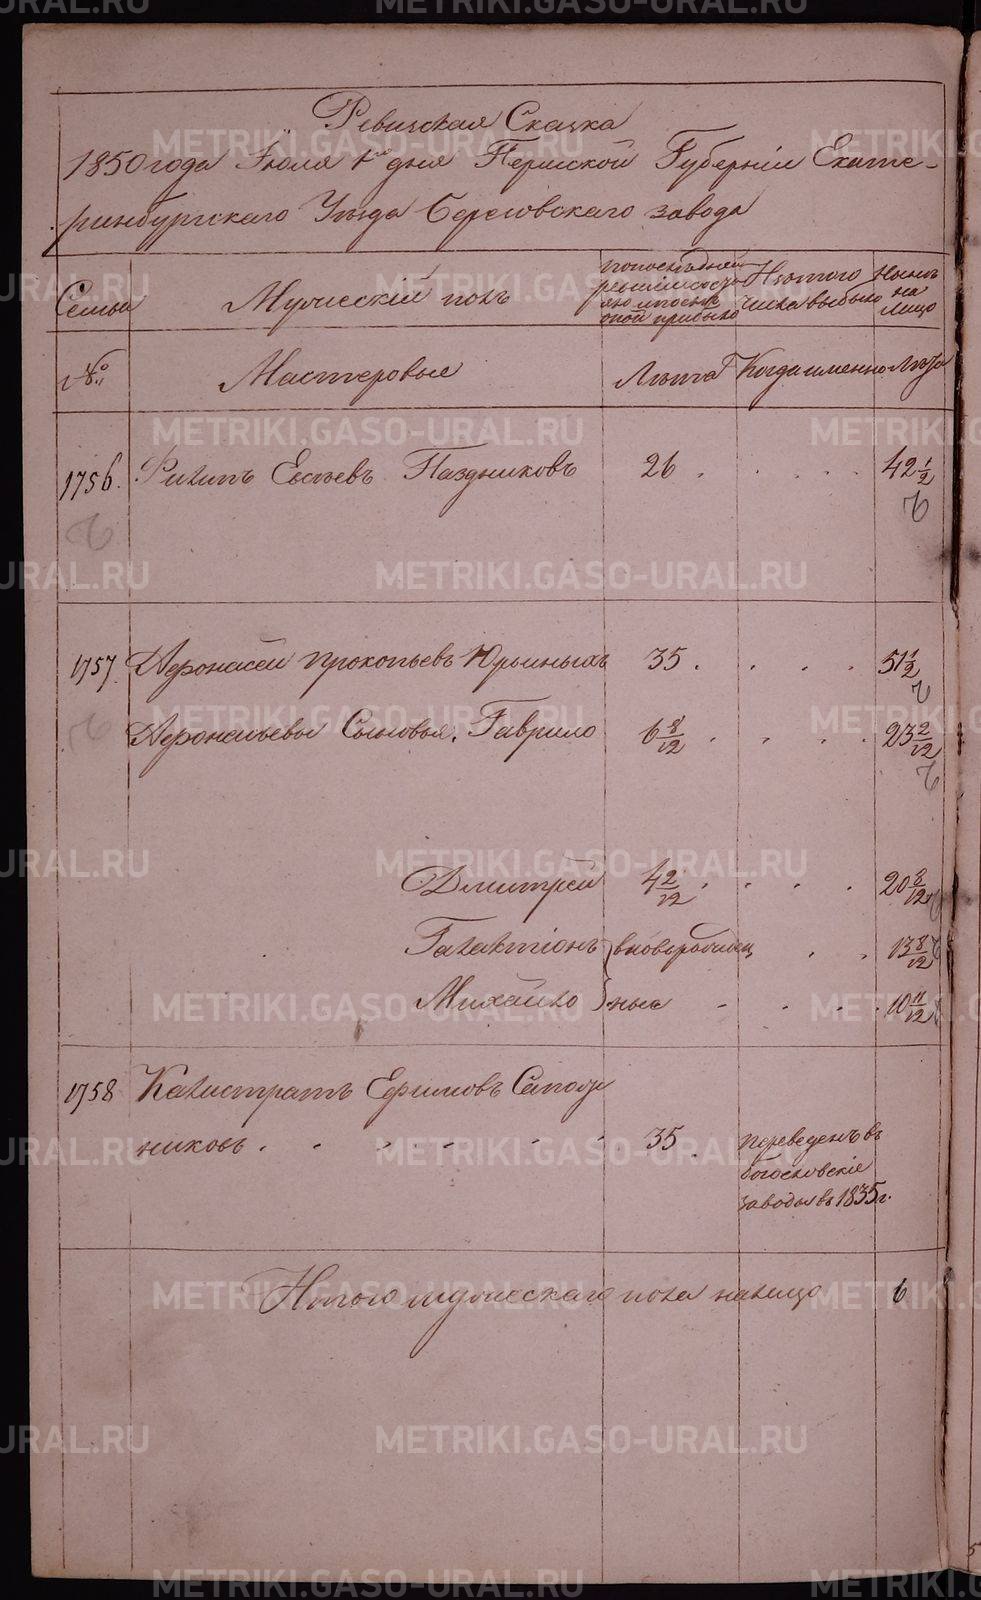 Ревизская Сказка
1850 года Июля 1го дня Пермской Губерніи Екате-
ринбургскаго Уѣзда Березовскаго завода
Семьи
Мужескій полъ
по последней ревизіи состояло и после оной прибыло
Изъ того числа выбыло
Нынѣ на лицо
№
Мастеровые
Лѣта
Когда именно
Лѣта
1756. Филипъ Евсѣевъ Паздниковъ 26 . . . . 42 1/2
1757. Афонасей Прокопьевъ Юрьиныхъ 35 . . . . 51 1/2
Афонасьевы Сыновья. Гаврило 6 8/12 . . . . 23 2/12
Дмитрей 4 2/12 . . . . 20 8/12
Галактіонъ } вноворожден . . 13 8/12
Михайло } ные . . . . 10 11/12
1758 Калистратъ Ефимовъ Сапож
никовъ . . . . . . 35 . переведенъ въ
богословскіе
заводы въ 1835 г.
Итого мужескаго пола налицо 6
METRIKI.GASO-URAL.RU